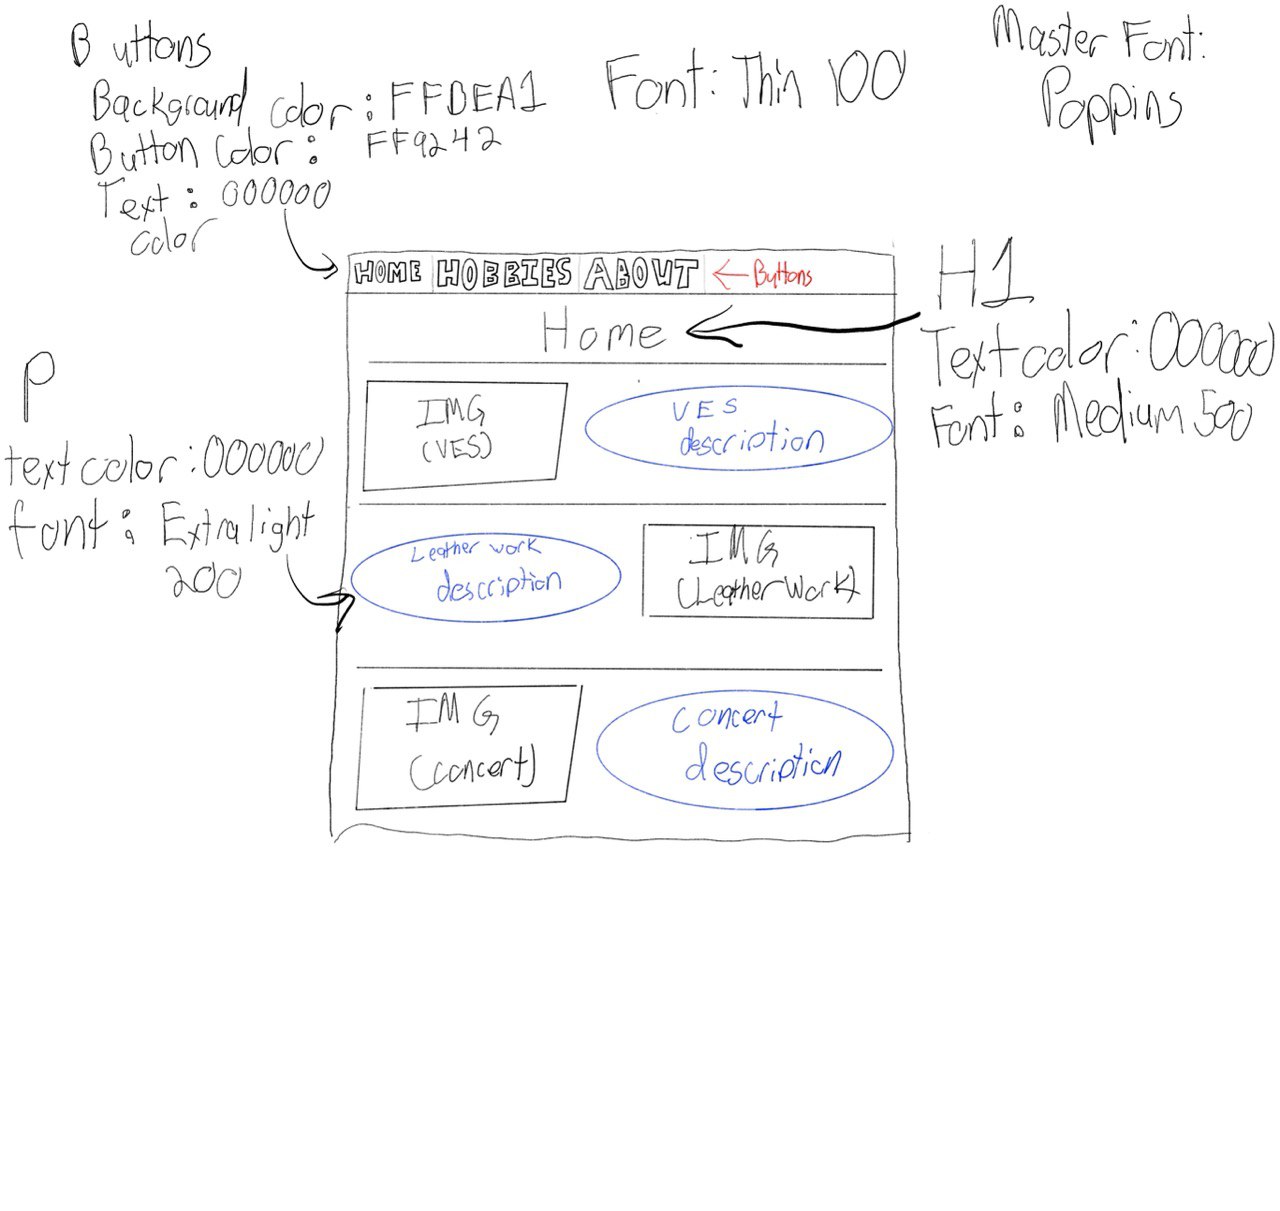 Buttons
Background color: FFBEA1
Button Color: FF9242
Text: 000000
color
Font: Thin 100
Master Font:
Poppins
HOME HOBBIES ABOUT
Buttons
Home
H1
Text color: 000000
Font: Medium 500
P
text color: 000000
font: Extralight
200
IMG
(VES)
VES
description
Leather work
description
IMG
(Leather Work)
IMG
(concert)
Concert
description